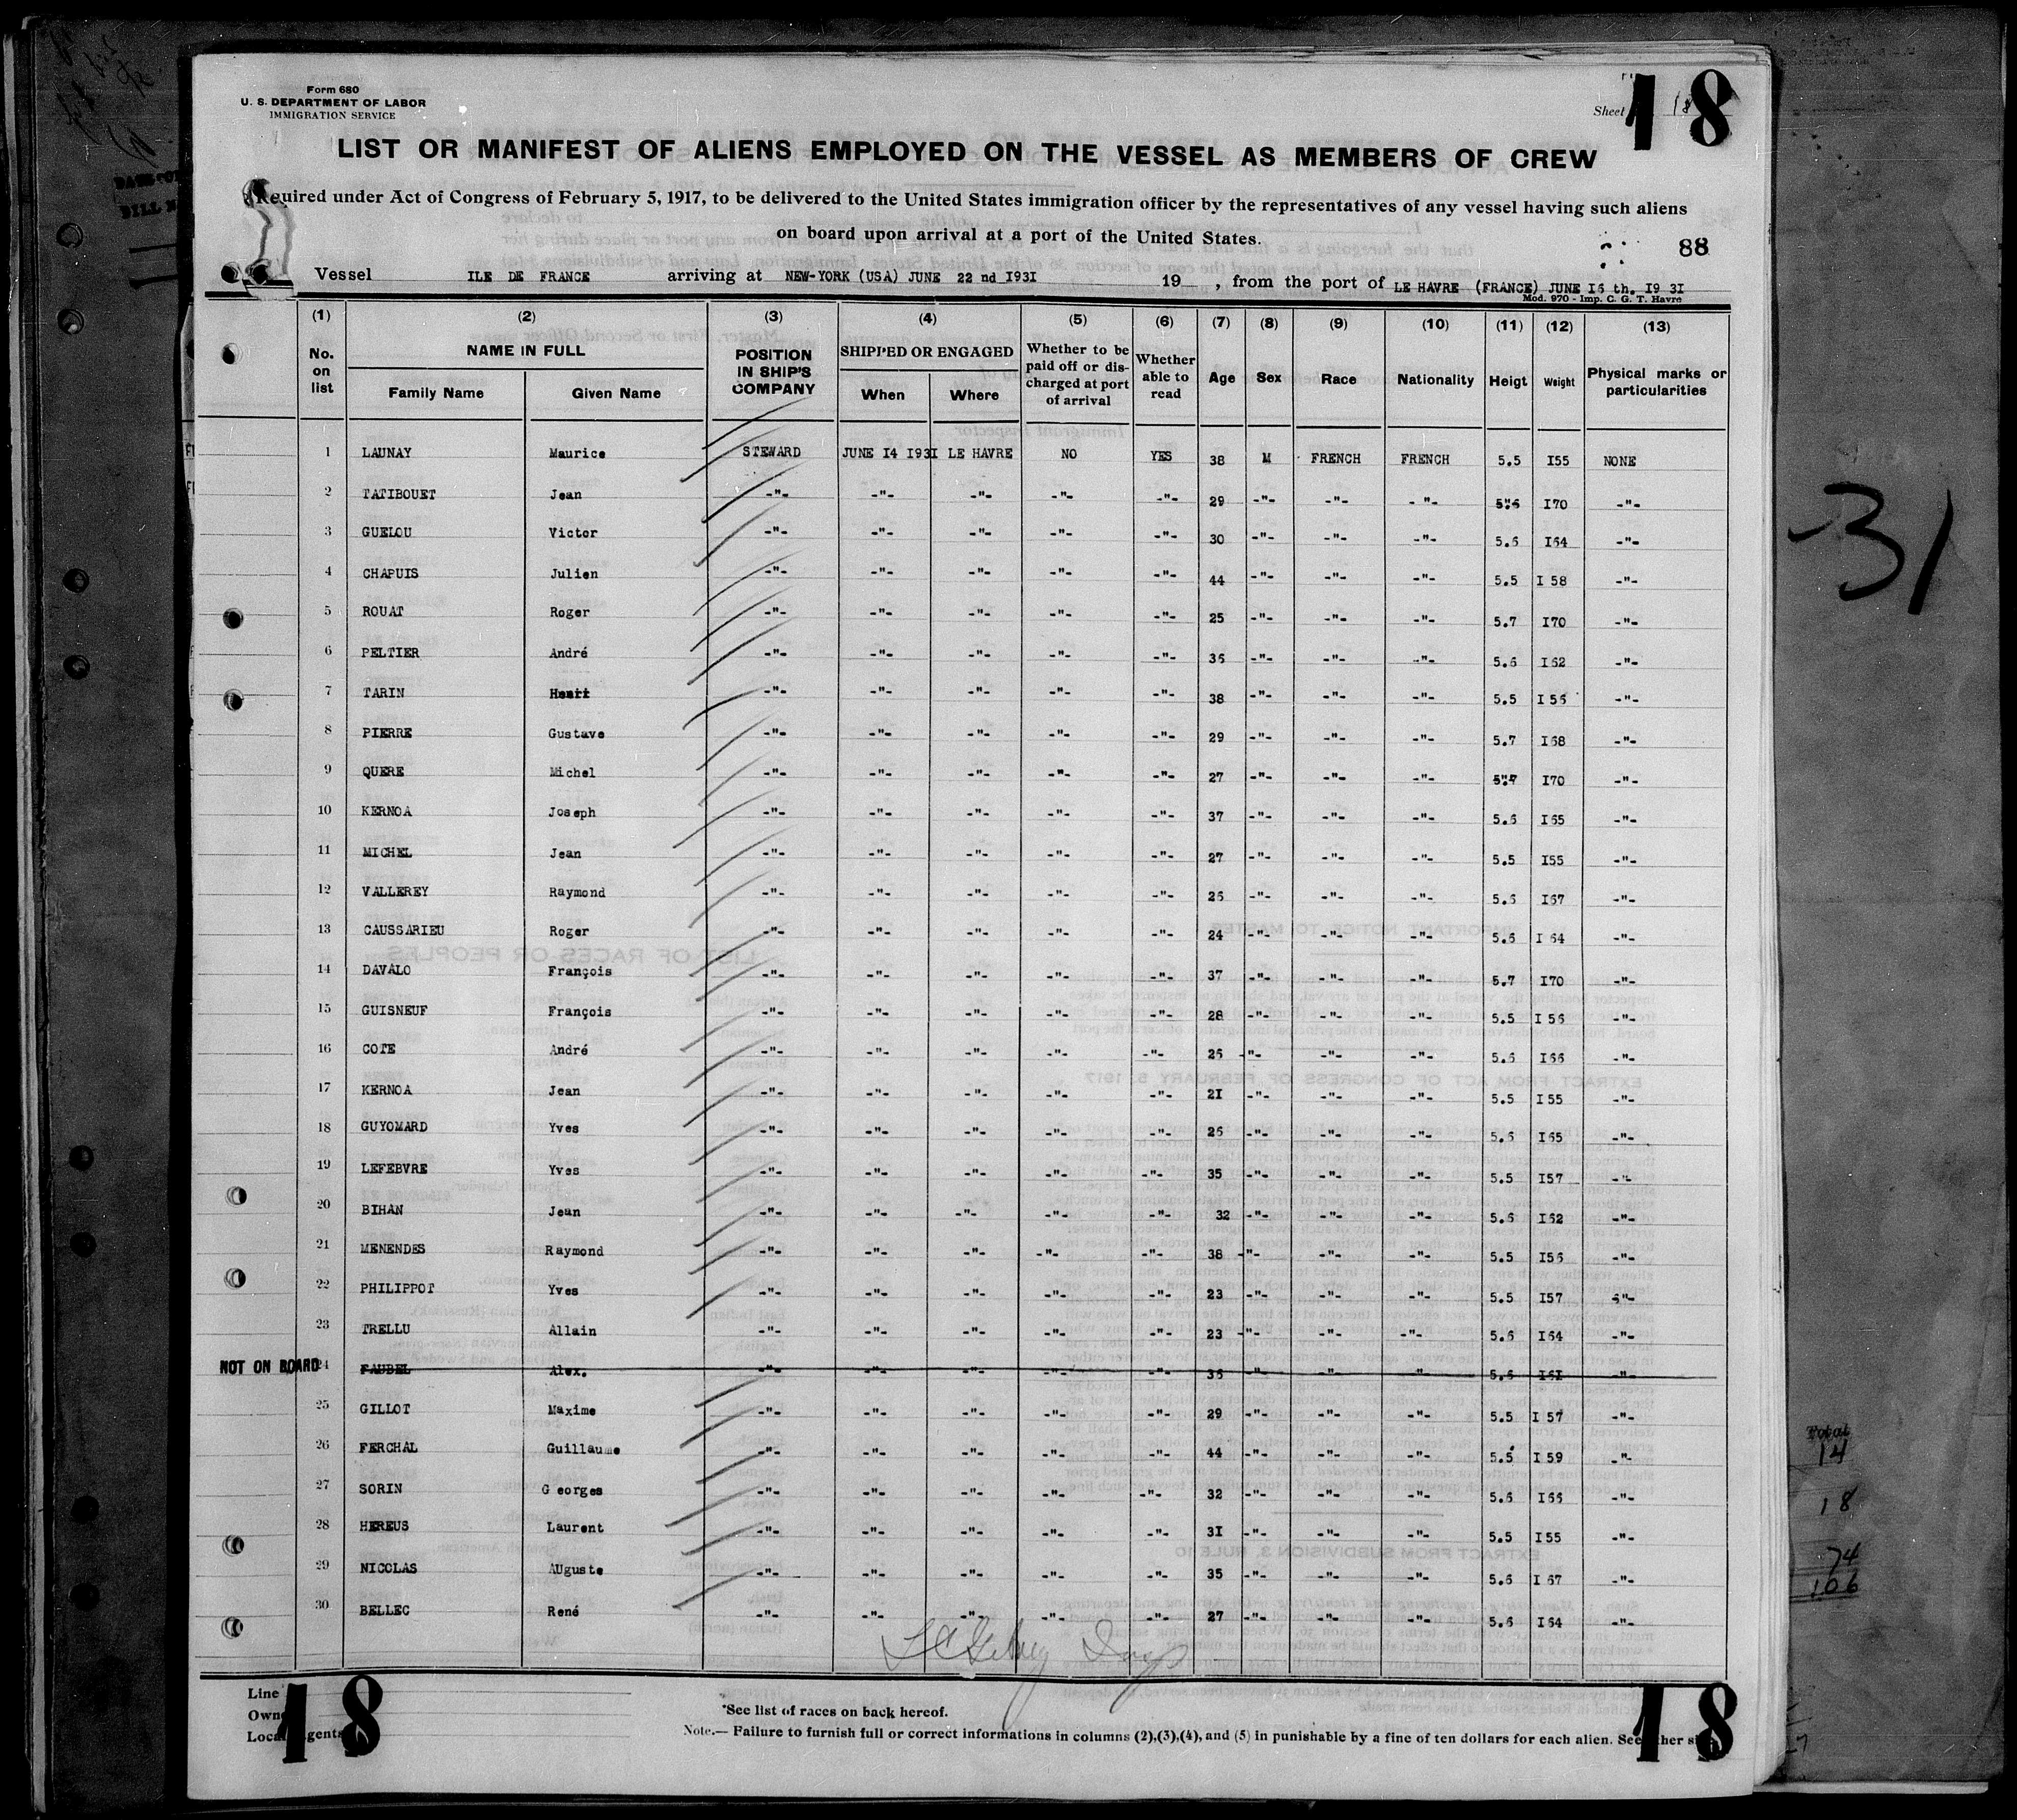 Form 680
U. S. DEPARTMENT OF LABOR
IMMIGRATION SERVICE
Sheet 18
18
LIST OR MANIFEST OF ALIENS EMPLOYED ON THE VESSEL AS MEMBERS OF CREW
Required under Act of Congress of February 5, 1917, to be delivered to the United States immigration officer by the representatives of any vessel having such aliens
on board upon arrival at a port of the United States.
88
Vessel ILE DE FRANCE arriving at NEW-YORK (USA) JUNE 22 nd I93I 19 , from the port of LE HAVRE (FRANCE) JUNE I6 th. I9 3I
Mod. 970 - Imp. C. G. T. Havre
(1) (2) (3) (4) (5) (6) (7) (8) (9) (10) (11) (12) (13)
No. on list NAME IN FULL Family Name Given Name POSITION IN SHIP'S COMPANY SHIPPED OR ENGAGED When Where Whether to be paid off or discharged at port of arrival Whether able to read Age Sex Race Nationality Heigt Weight Physical marks or particularities
1 LAUNAY Maurice STEWARD JUNE I4 I93I LE HAVRE NO YES 38 M FRENCH FRENCH 5.5 I55 NONE
2 TATIBOUET Jean -"- -"- -"- -"- -"- 29 -"- -"- -"- 5.6 I70 -"-
3 GUELOU Victor -"- -"- -"- -"- -"- 30 -"- -"- -"- 5.6 I64 -"-
4 CHAPUIS Julien -"- -"- -"- -"- -"- 44 -"- -"- -"- 5.5 I 58 -"-
5 ROUAT Roger -"- -"- -"- -"- -"- 25 -"- -"- -"- 5.7 I70 -"-
6 PELTIER André -"- -"- -"- -"- -"- 36 -"- -"- -"- 5.6 I62 -"-
7 TARIN Henri -"- -"- -"- -"- -"- 38 -"- -"- -"- 5.5 I 56 -"-
8 PIERRE Gustave -"- -"- -"- -"- -"- 29 -"- -"- -"- 5.7 I68 -"-
9 QUERE Michel -"- -"- -"- -"- -"- 27 -"- -"- -"- 5.7 I70 -"-
10 KERNOA Joseph -"- -"- -"- -"- -"- 37 -"- -"- -"- 5.6 I65 -"-
11 MICHEL Jean -"- -"- -"- -"- -"- 27 -"- -"- -"- 5.5 I55 -"-
12 VALLEREY Raymond -"- -"- -"- -"- -"- 26 -"- -"- -"- 5.6 I67 -"-
13 CAUSSARIEU Roger -"- -"- -"- -"- -"- 24 -"- -"- -"- 5.6 I 64 -"-
14 DAVALO François -"- -"- -"- -"- -"- 37 -"- -"- -"- 5.7 I70 -"-
15 GUISNEUF François -"- -"- -"- -"- -"- 28 -"- -"- -"- 5.5 I 56 -"-
16 COTE André -"- -"- -"- -"- -"- 26 -"- -"- -"- 5.6 I66 -"-
17 KERNOA Jean -"- -"- -"- -"- -"- 2I -"- -"- -"- 5.5 I 55 -"-
18 GUYOMARD Yves -"- -"- -"- -"- -"- 26 -"- -"- -"- 5.6 I65 -"-
19 LEFEBVRE Yves -"- -"- -"- -"- -"- 35 -"- -"- -"- 5.5 I57 -"-
20 BIHAN Jean -"- -"- -"- -"- -"- 32 -"- -"- -"- 5.6 I62 -"-
21 MENENDES Raymond -"- -"- -"- -"- -"- 38 -"- -"- -"- 5.5 I56 -"-
22 PHILIPPOT Yves -"- -"- -"- -"- -"- 23 -"- -"- -"- 5.5 I57 -"-
23 TRELLU Allain -"- -"- -"- -"- -"- 23 -"- -"- -"- 5.6 I64 -"-
NOT ON BOARD 24 FAUBEL Alex. -"- -"- -"- -"- -"- 36 -"- -"- -"- 5.6 I6I -"-
25 GILLOT Maxime -"- -"- -"- -"- -"- 29 -"- -"- -"- 5.5 I 57 -"-
26 FERCHAL Guillaume -"- -"- -"- -"- -"- 44 -"- -"- -"- 5.5 I 59 -"-
27 SORIN G eorges -"- -"- -"- -"- -"- 32 -"- -"- -"- 5.6 I66 -"-
28 HEREUS Laurent -"- -"- -"- -"- -"- 3I -"- -"- -"- 5.5 I55 -"-
29 NICOLAS AUguste -"- -"- -"- -"- -"- 35 -"- -"- -"- 5.6 I 67 -"-
30 BELLEC René -"- -"- -"- -"- -"- 27 -"- -"- -"- 5.6 I64 -"-
Line
Owners
Local Agents
18
*See list of races on back hereof.
Note.— Failure to furnish full or correct informations in columns (2),(3),(4), and (5) in punishable by a fine of ten dollars for each alien. See other side
18
31
Total
14
18
74
106